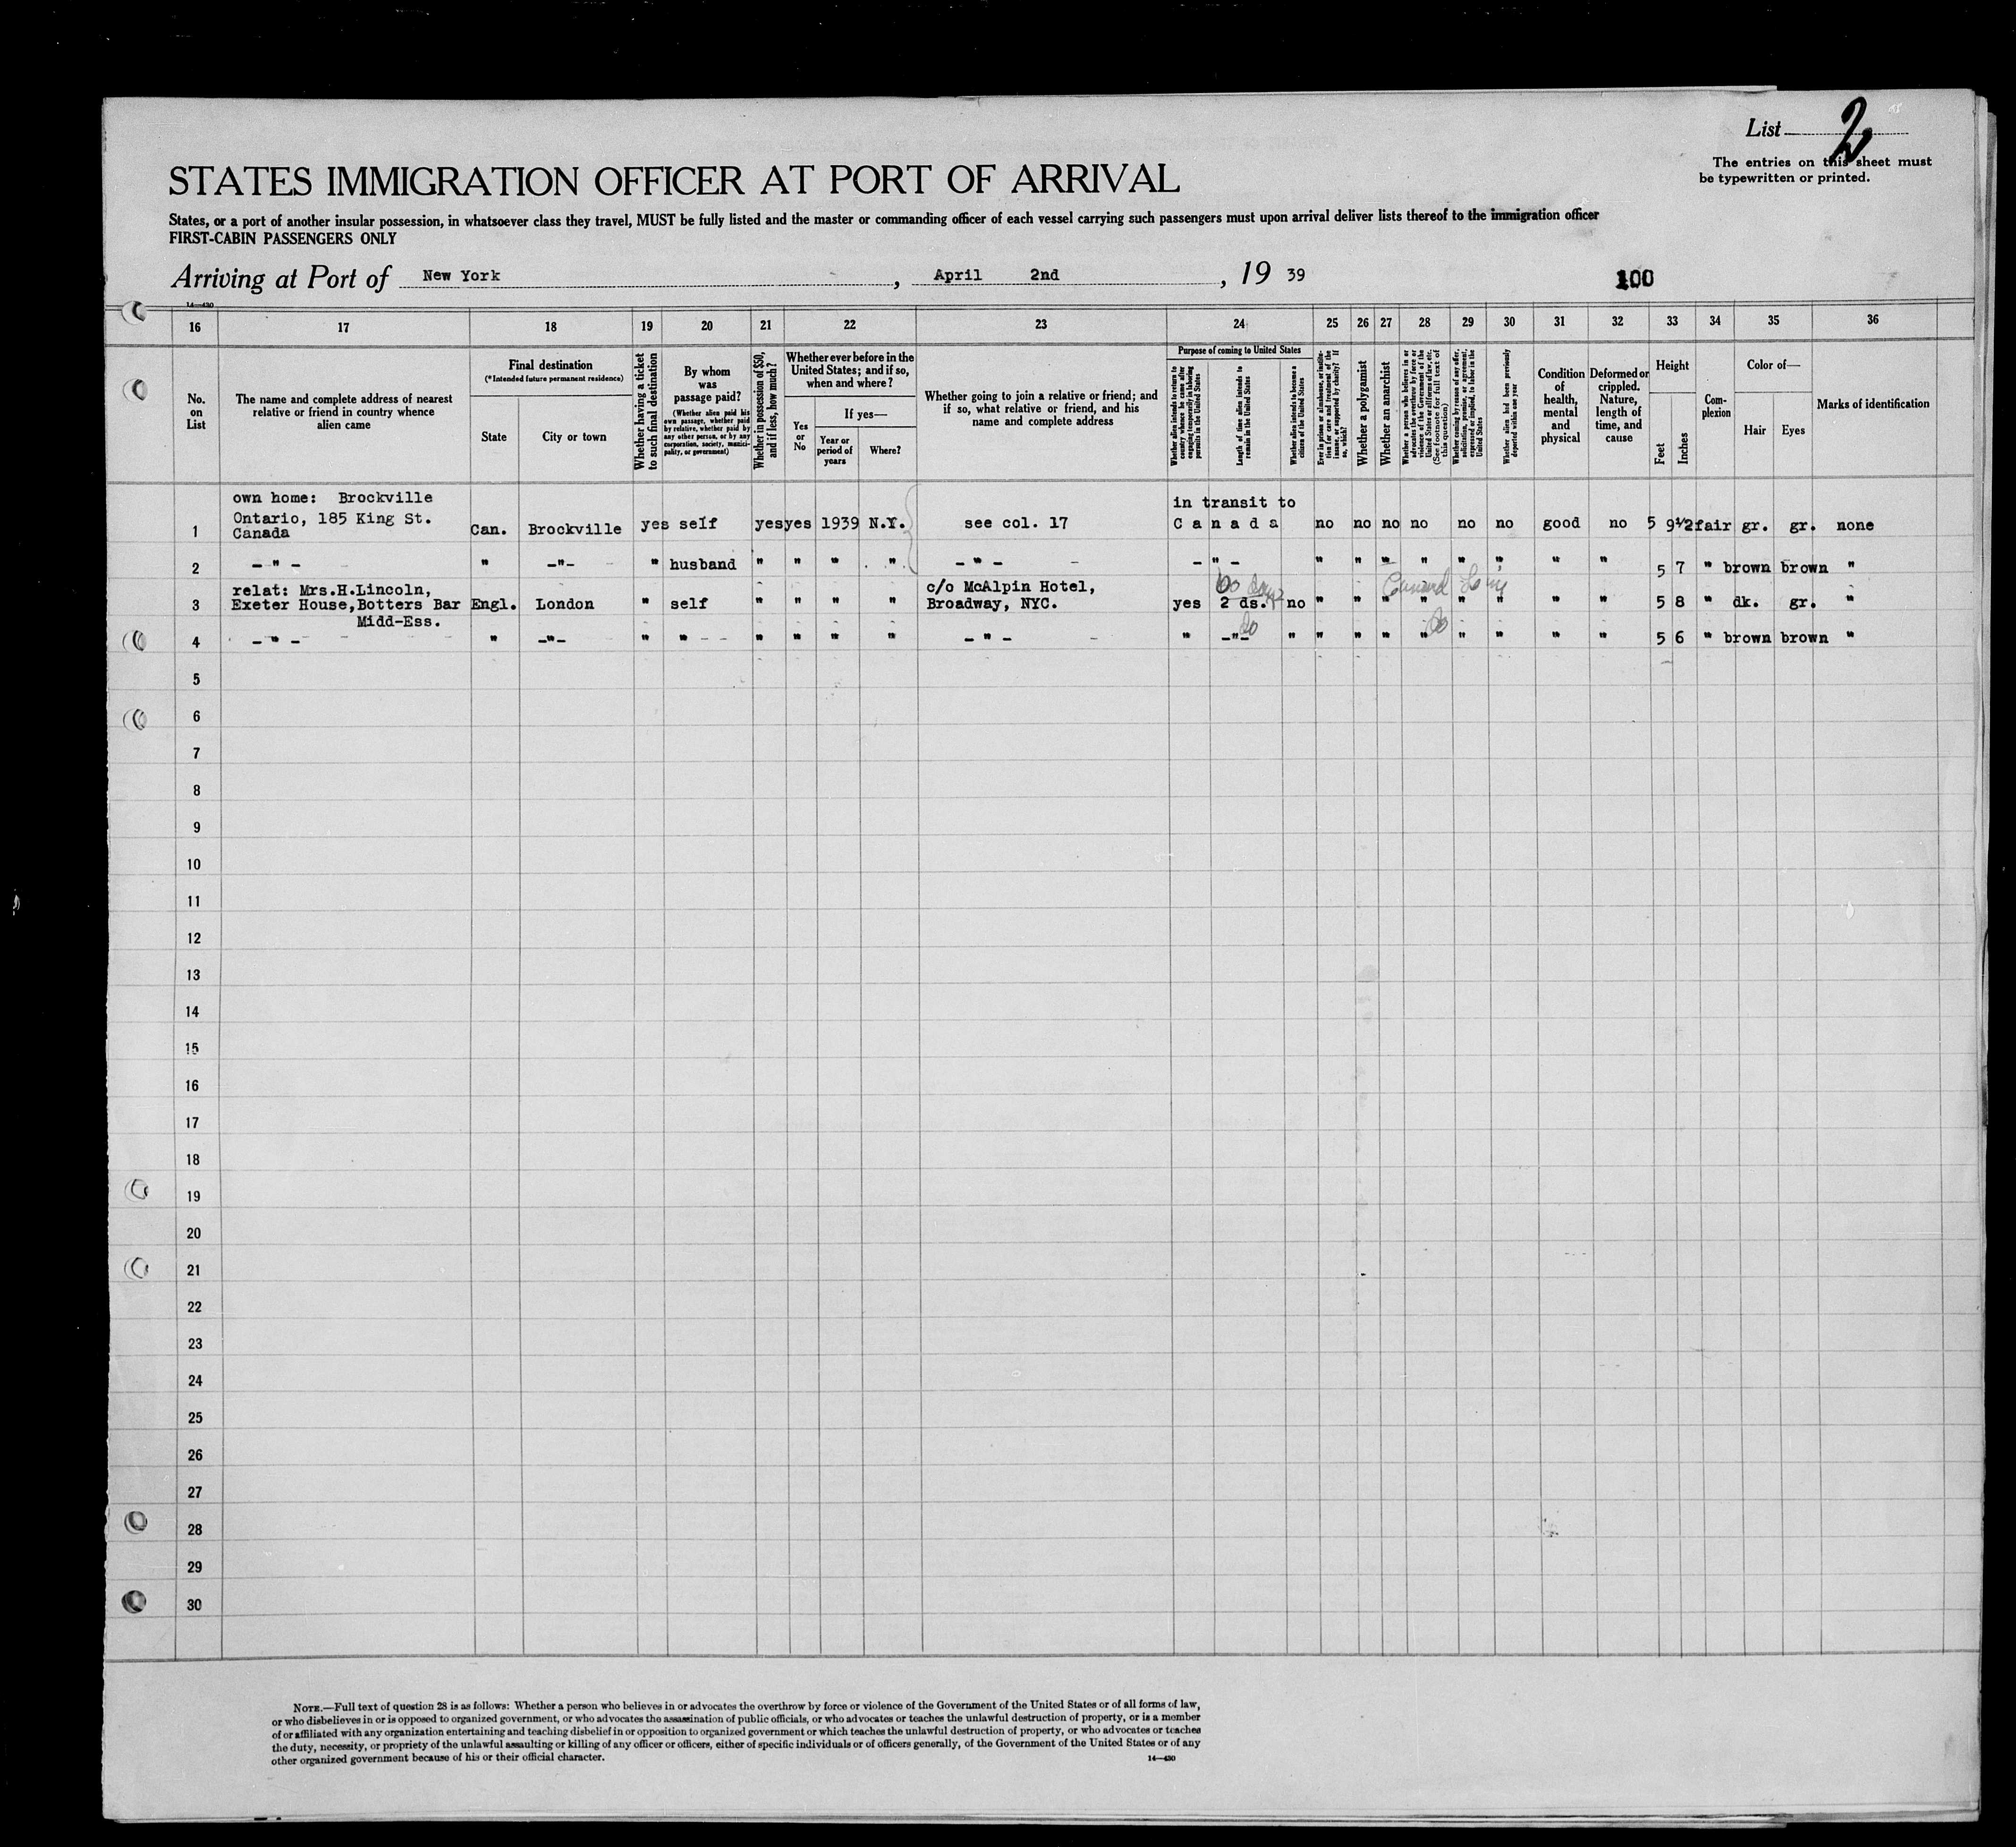 List 2
The entries on this sheet must
be typewritten or printed.
STATES IMMIGRATION OFFICER AT PORT OF ARRIVAL
States, or a port of another insular possession, in whatsoever class they travel, MUST be fully listed and the master or commanding officer of each vessel carrying such passengers must upon arrival deliver lists thereof to the immigration officer
FIRST-CABIN PASSENGERS ONLY
Arriving at Port of New York, April 2nd, 19 39
100
14—430
16 17 18 19 20 21 22 23 24 25 26 27 28 29 30 31 32 33 34 35 36
No. on List
The name and complete address of nearest relative or friend in country whence alien came
Final destination
(*Intended future permanent residence)
State
City or town
Whether having a ticket to such final destination
By whom was passage paid?
(Whether alien paid his own passage, whether paid by relative, whether paid by any other person, or by any corporation, society, municipality, or government)
Whether in possession of $50, and if less, how much?
Whether ever before in the United States; and if so, when and where?
Yes or No
If yes—
Year or period of years
Where?
Whether going to join a relative or friend; and if so, what relative or friend, and his name and complete address
Purpose of coming to United States
Whether alien intends to return to country whence he came after engaging temporarily in laboring pursuits in the United States
Length of time alien intends to remain in the United States
Whether alien intends to become a citizen of the United States
Ever in prison or almshouse, or institution for care and treatment of the insane, or supported by charity? If so, which?
Whether a polygamist
Whether an anarchist
Whether a person who believes in or advocates the overthrow by force or violence of the Government of the United States or all forms of law, etc. (See footnote for full text of this question)
Whether coming by reason of any offer, solicitation, promise, or agreement, expressed or implied, to labor in the United States
Whether alien had been previously deported within one year
Condition of health, mental and physical
Deformed or crippled. Nature, length of time, and cause
Height
Feet
Inches
Complexion
Color of—
Hair
Eyes
Marks of identification
own home: Brockville
in transit to
1 Ontario, 185 King St. Canada Can. Brockville yes self yes yes 1939 N.Y. see col. 17 Canada no no no no no no good no 5 9½ fair gr. gr. none
2 – " – " –"– " husband " " " " – " – – " – " " " " " " " " 5 7 " brown brown "
relat: Mrs.H.Lincoln, c/o McAlpin Hotel, 60 days
3 Exeter House, Botters Bar Engl. London " self " " " " Broadway, NYC. yes 2 ds. no " " " " " " " " 5 8 " dk. gr. "
Midd-Ess. do do
4 – " – " –"– " " " " " " – " – " –"– " " " " " " " " " 5 6 " brown brown "
5
6
7
8
9
10
11
12
13
14
15
16
17
18
19
20
21
22
23
24
25
26
27
28
29
30
NOTE.—Full text of question 28 is as follows: Whether a person who believes in or advocates the overthrow by force or violence of the Government of the United States or of all forms of law,
or who disbelieves in or is opposed to organized government, or who advocates the assassination of public officials, or who advocates or teaches the unlawful destruction of property, or is a member
of or affiliated with any organization entertaining and teaching disbelief in or opposition to organized government or which teaches the unlawful destruction of property, or who advocates or teaches
the duty, necessity, or propriety of the unlawful assaulting or killing of any officer or officers, either of specific individuals or of officers generally, of the Government of the United States or of any
other organized government because of his or their official character.
14—430